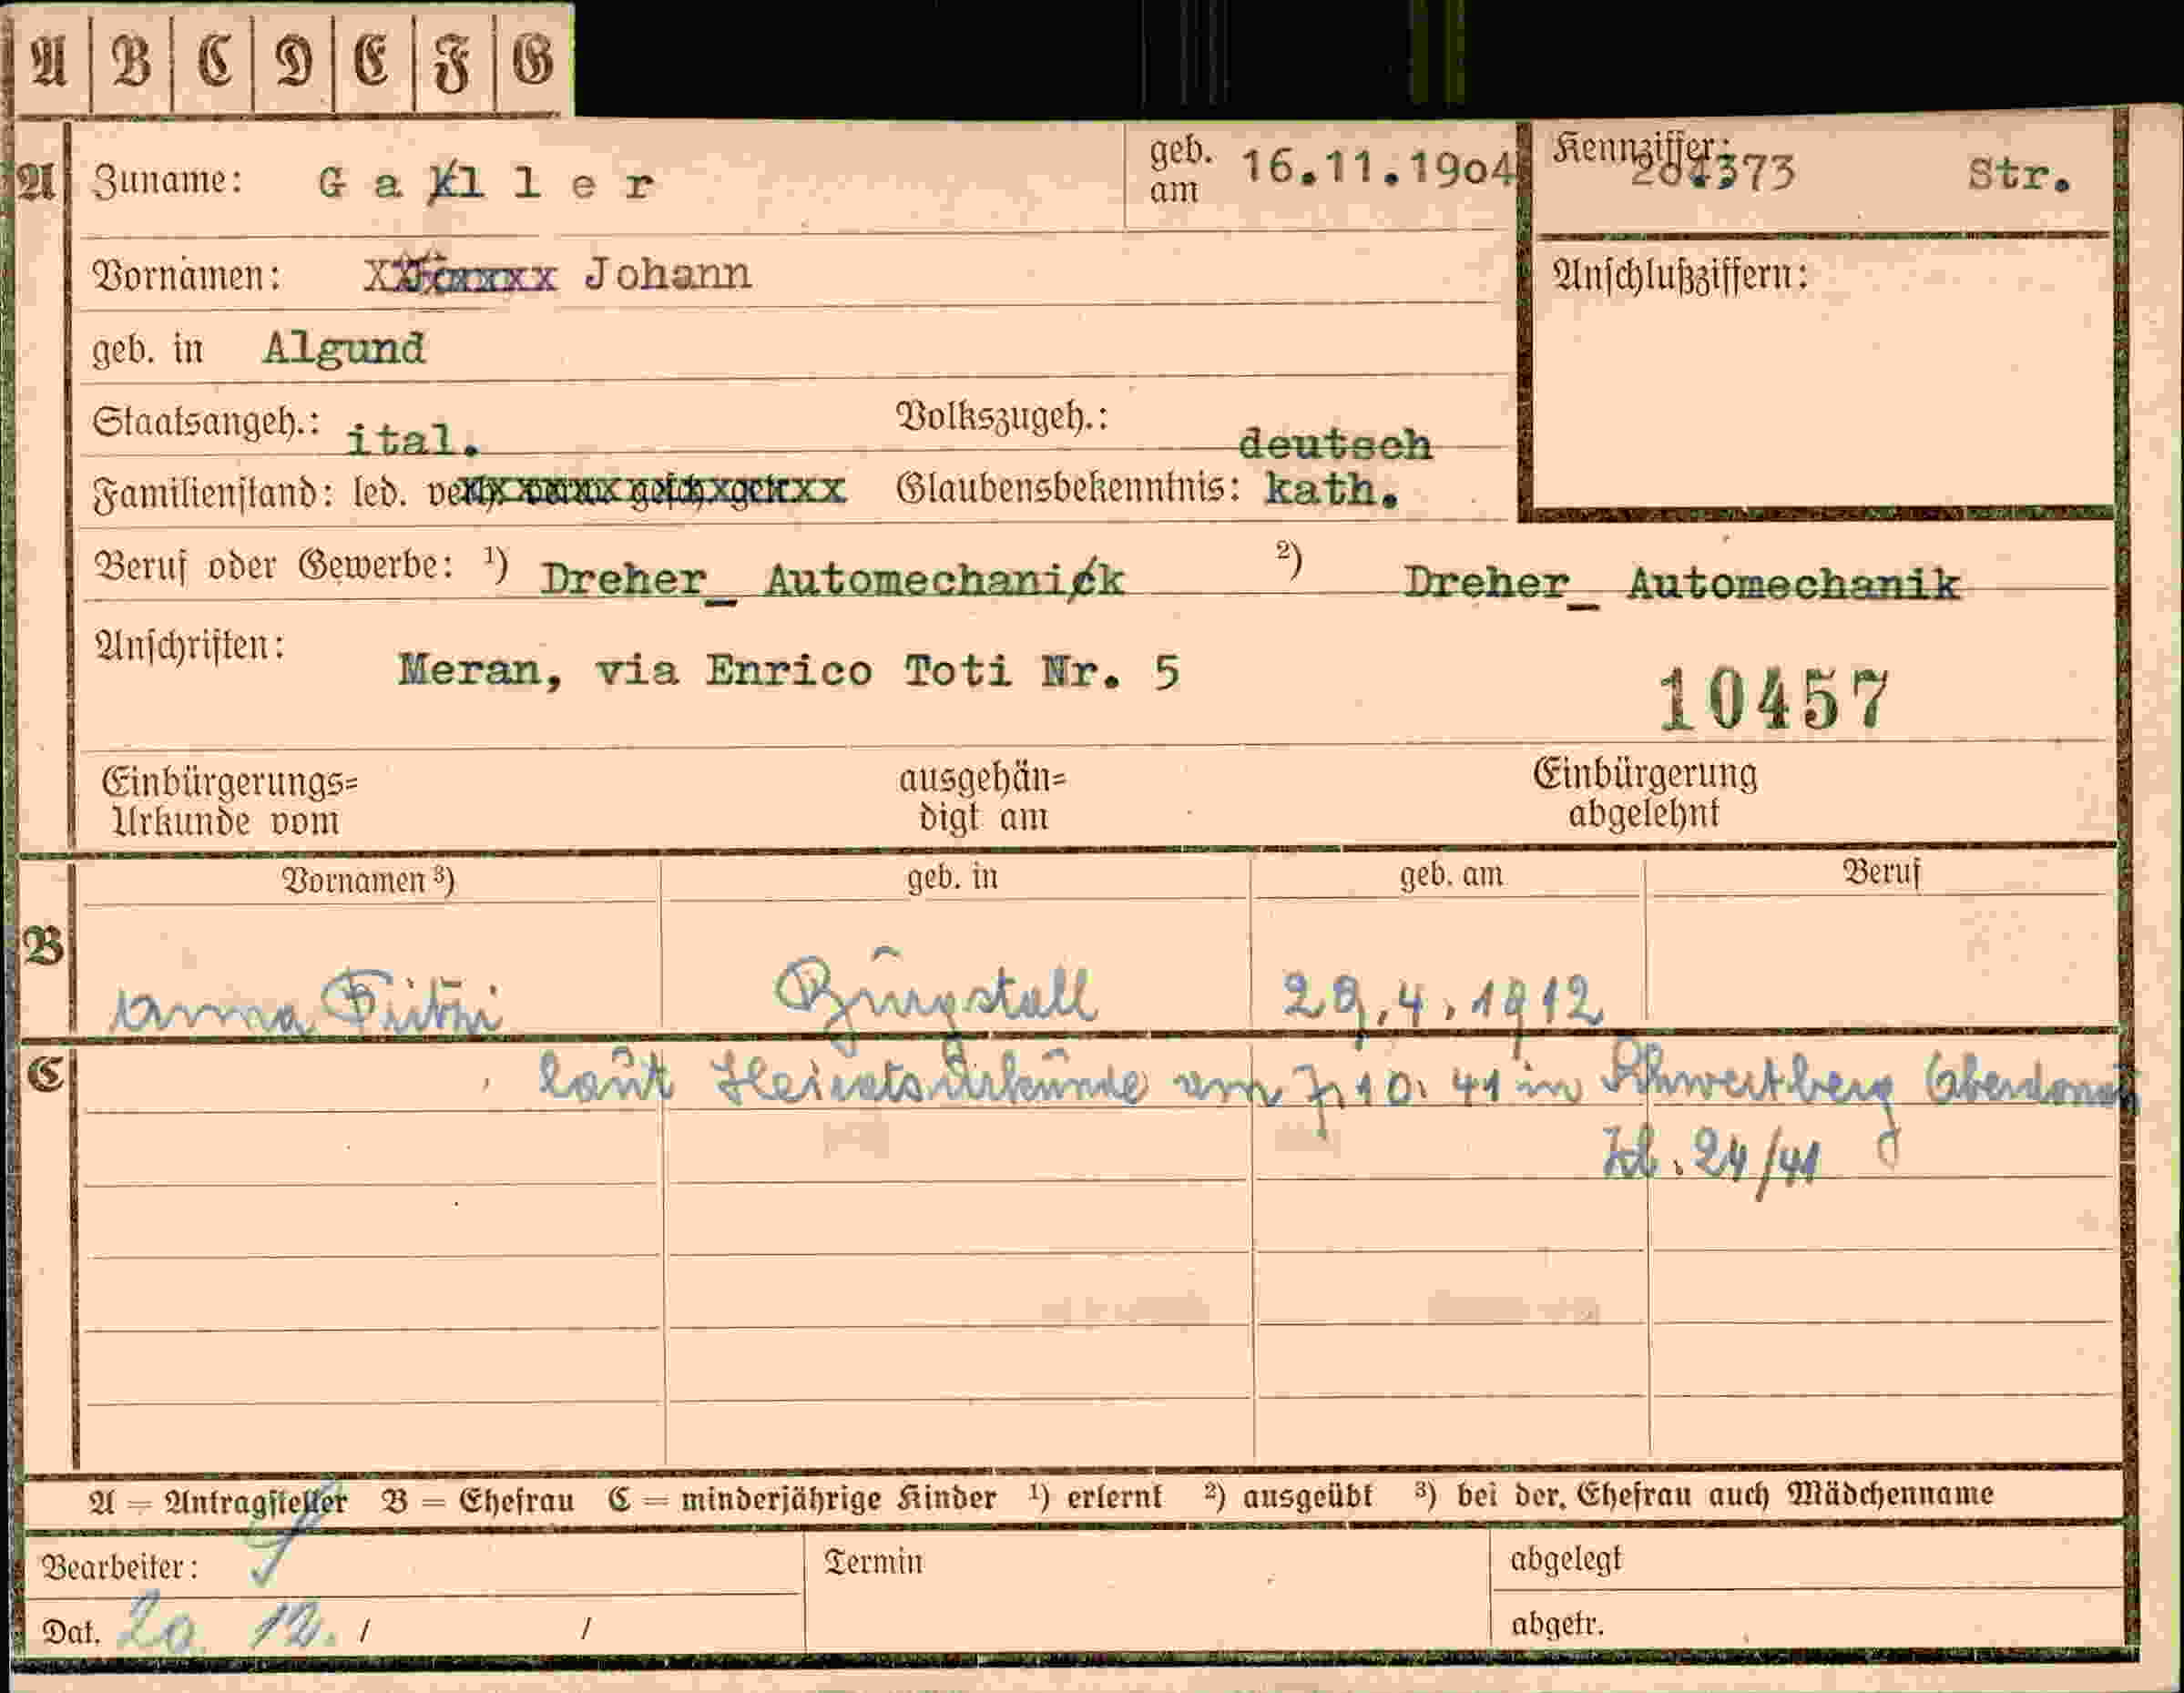 A B C D E F G
A Zuname: G a l l e r geb. am 16.11.1904 Kennziffer: 373 Str.
Vornamen: Johann Anschlußziffern:
geb. in Algund
Staatsangeh.: ital. Volkszugeh.: deutsch
Familienstand: led. verh. verw. gesch. getr. Glaubensbekenntnis: kath.
Beruf oder Gewerbe: 1) Dreher_ Automechanick 2) Dreher_ Automechanik
Anschriften: Meran, via Enrico Toti Nr. 5 10457
Einbürgerungs= ausgehän= Einbürgerung
Urkunde vom digt am abgelehnt
Vornamen 3) geb. in geb. am Beruf
B Anna Burgstall 29.4.1912
C laut Heiratsurkunde am 7.10.41 in Schwertberg Oberdonau
Zl. 24/41
A = Antragsteller B = Ehefrau C = minderjährige Kinder 1) erlernt 2) ausgeübt 3) bei der Ehefrau auch Mädchenname
Bearbeiter: Termin abgelegt
Dat. 20 12. / / abgetr.